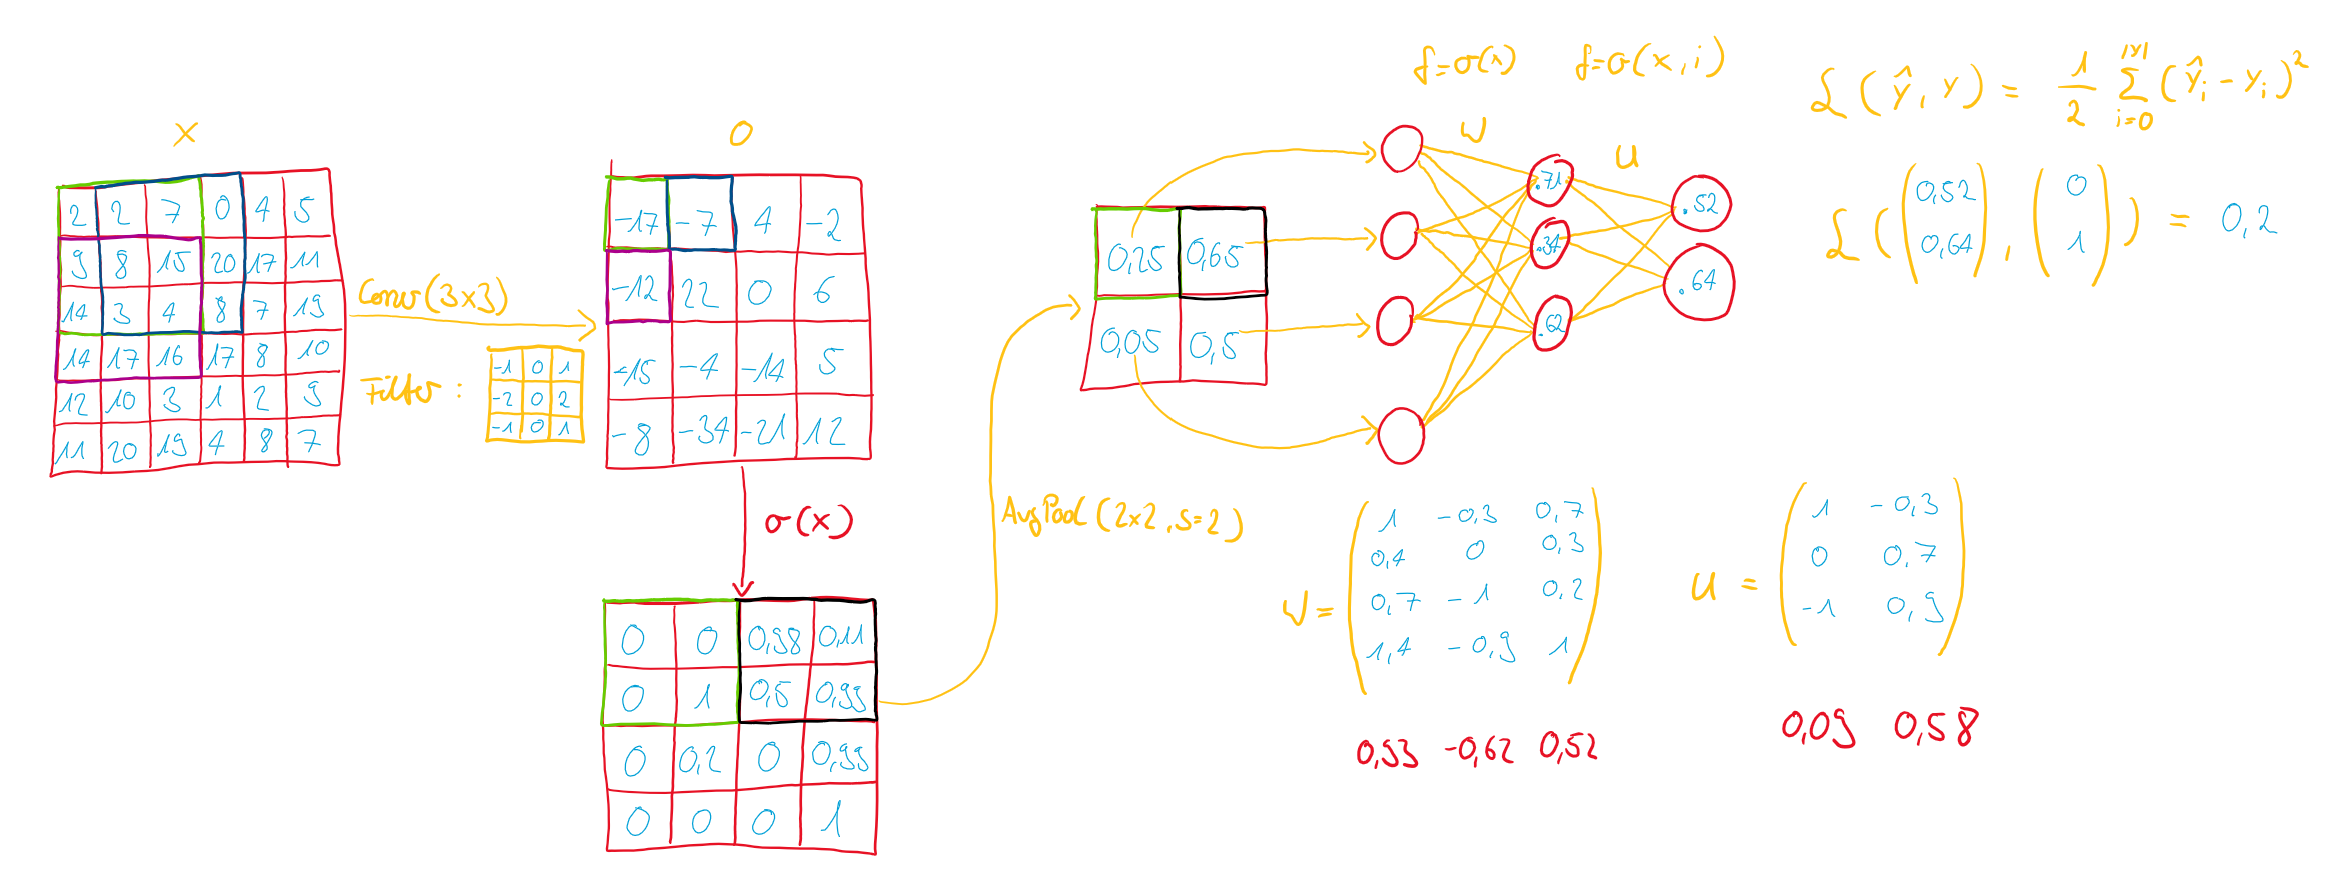 f=σ(x) f=σ(x,i)
ℒ(ŷ, y) = 1/2 |y| Σ i=0 (ŷi - yi)²
X
O
W
U
2 2 7 0 4 5
9 8 15 20 17 11
14 3 4 8 7 19
14 17 16 17 8 10
12 10 3 1 2 9
11 20 19 4 8 7
Conv(3x3)
Filter:
-1 0 1
-2 0 2
-1 0 1
-17 -7 4 -2
-12 22 0 6
-15 -4 -14 5
-8 -34 -21 12
σ(x)
0 0 0,98 0,11
0 1 0,5 0,99
0 0,2 0 0,99
0 0 0 1
AvgPool(2x2, S=2)
0,25 0,65
0,05 0,5
.71
.34
.62
.52
.64
ℒ((0,52 0,64), (0 1)) = 0,2
W =
1 -0,3 0,7
0,4 0 0,3
0,7 -1 0,2
1,4 -0,9 1
0,93 -0,62 0,52
U =
1 -0,3
0 0,7
-1 0,9
0,09 0,58